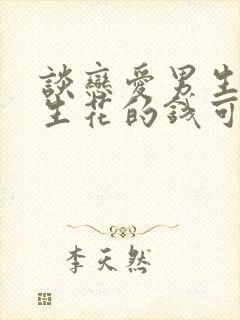 談戀愛男生
生花的錢可
李天然